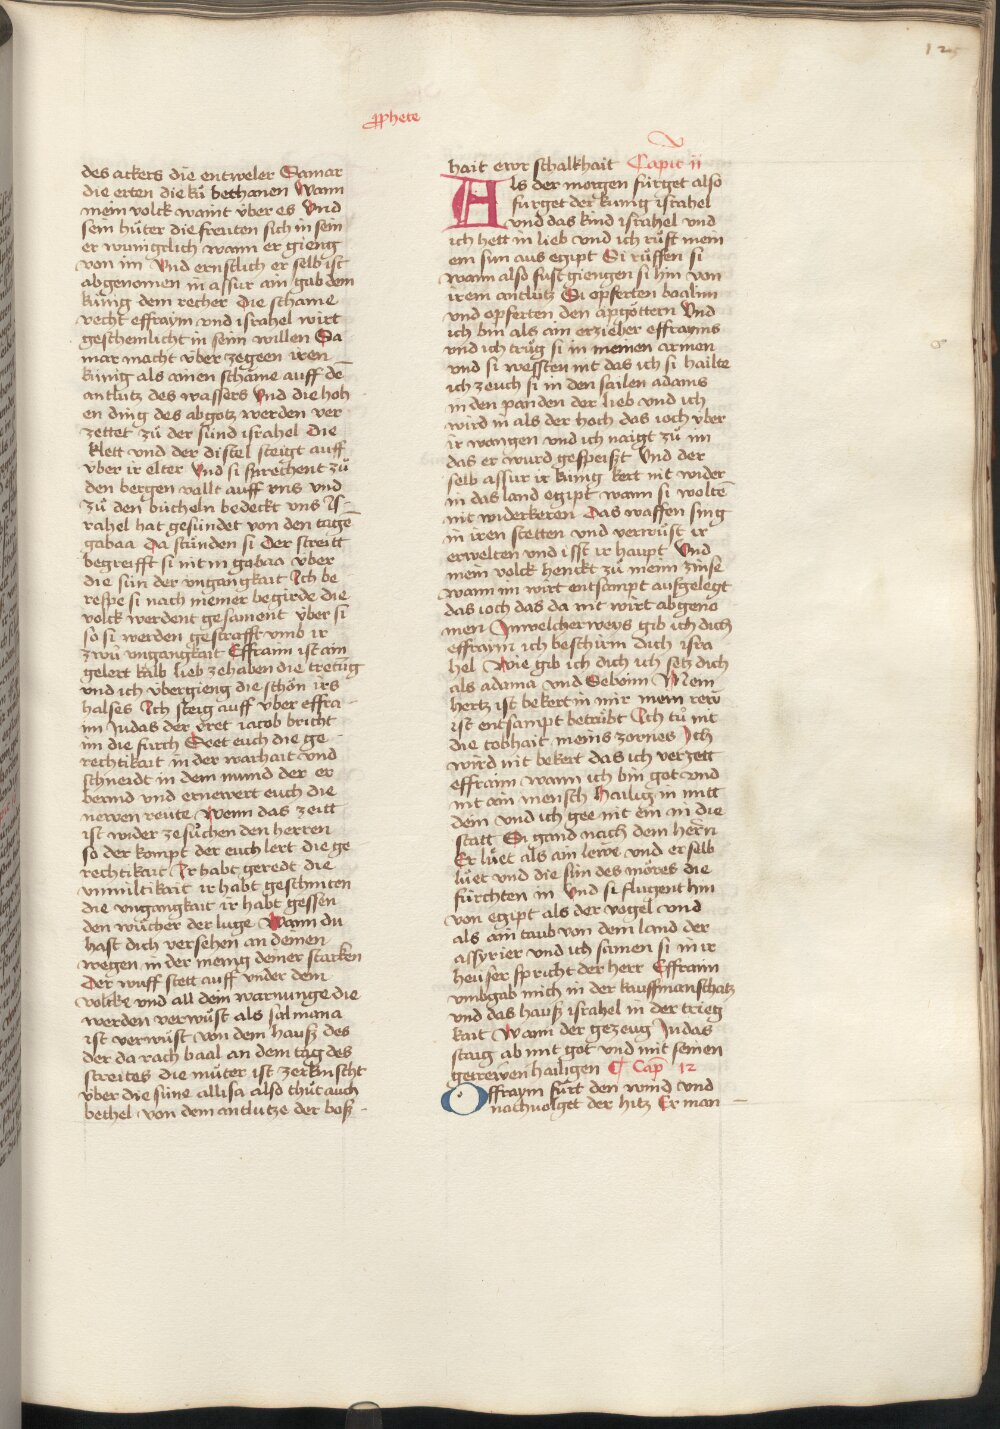 125
prophete
des ackers die entweler Samar
die erten die ků bethauen Wann
mein volck waint v̈ber es Vnd
sein hůter die freuten sich in sein
er wunigclich wann er gieng
von im Vnd ernstlich er selb ist
abgenomen in assur ain gab dem
kůnig dem recher Die schame
vecht effraym vnd israhel wirt
geschemlicht in seim willen Sa
mar macht v̈ber zegeen iren
kůnig als ainen schame auff de
antlutz des wassers Vnd die hoh
en ding des abgotz werden ver
zettet zů der sůnd israhel Die
klett vnd der distel steigt auff
v̈ber ir elter Vnd si sprechent zů
den bergen vallt auff vns vnd
zů den bůcheln bedeckt vns Is
rahel hat gesůndet von den tage
gabaa Da stůnden si Der streitt
begreifft si nit in gabaa v̈ber
die sůn der vngangkait Ich be
respe si nach meiner begirde die
volck werdent gesament v̈ber si
so si werden gestrafft vmb ir
zwů vngangkait Effraim ist ain
gelert kalb lieb zehaben die tretung
vnd ich v̈bergieng die schön irs
halses Ich steig auff v̈ber effra
im Judas der v̈ret iacob bricht
im die furch Seet euch die ge
rechtikait in der warhait vnd
schneidt in dem mund der er
bermd vnd ernewert euch die
newen reute Wenn das zeitt
ist wider zesůchen den herren
so der kompt der euch lert die ge
rechtikait Ir habt geredt die
vnmiltikait ir habt geschniten
die vngangkait ir habt gessen
den wůcher der luge Wann du
hast dich versehen an deinen
wegen in der menig deiner starken
Der wuff stett auff vnder dem
volcke vnd all dein warnunge die
werden verwůst als salmana
ist verwůst von dem hauß des
der da rach baal an dem tag des
streites die můter ist zerknischt
v̈ber die sůne allisa also thůt auch
bethel von dem antlutze der boß
hait ewr schalkhait Capit ii
Als der morgen fůrget also
fůrget der kunig israhel
vnd das kind israhel vnd
ich hett in lieb vnd ich růft mein
em sun aus egipt Si růffen si
wann also fust giengen si hin von
irem antlůtz Si opferten baalim
vnd opferten den apgöttern Vnd
ich bin als ain erzieher effrayms
vnd ich trůg si in meinen armen
vnd si wessten nit das ich si hailte
ich zeuch si in den sailen adams
in den panden der lieb vnd ich
wird in als der hoch das ioch v̈ber
ir wangen vnd ich naigt zů im
das er wurd gespeißt Vnd der
selb assur ir kunig kert nit wider
in das land egipt wann si wolte
nit widerkeren Das waffen sing
in iren stetten vnd verwůst ir
erwelten vnd isst ir haupt Vnd
mein volck henckt zů meim zinse
wann im wirt entsampt aufgelegt
das ioch das da nit wirt abgeno
men Inwelcherweys gib ich dich
effraym ich beschirm dich isra
hel Wie gib ich dich ich setz dich
als adama vnd Seboim Mein
hertz ist bekert in mir mein rew
ist entsampt betrůbt Ich tů nit
die tobhait meins zornes Ich
wird nit bekert das ich verzett
effraim wann ich bin got vnd
nit ain mensch Hailig in mitt
dein vnd ich gee nit ein in die
statt Si gand nach dem herrn
Er lůet als ain lewe vnd er selb
lůet vnd die sůn des möres die
fůrchten in Vnd si fliugent hin
von egipt als der vogel vnd
als ain taub von dem land der
assyrier vnd ich samen si in ir
heuser spricht der herr Effraim
vmbgab mich in der kauffmanschatz
vnd das hauß israhel in der trieg
kait Wann der gezeug Judas
staig ab mit got vnd mit seinen
getrewen hailigen ¶ Cap 12
Offraym fůrt den wind vnd
nachuolget der hitz Er man